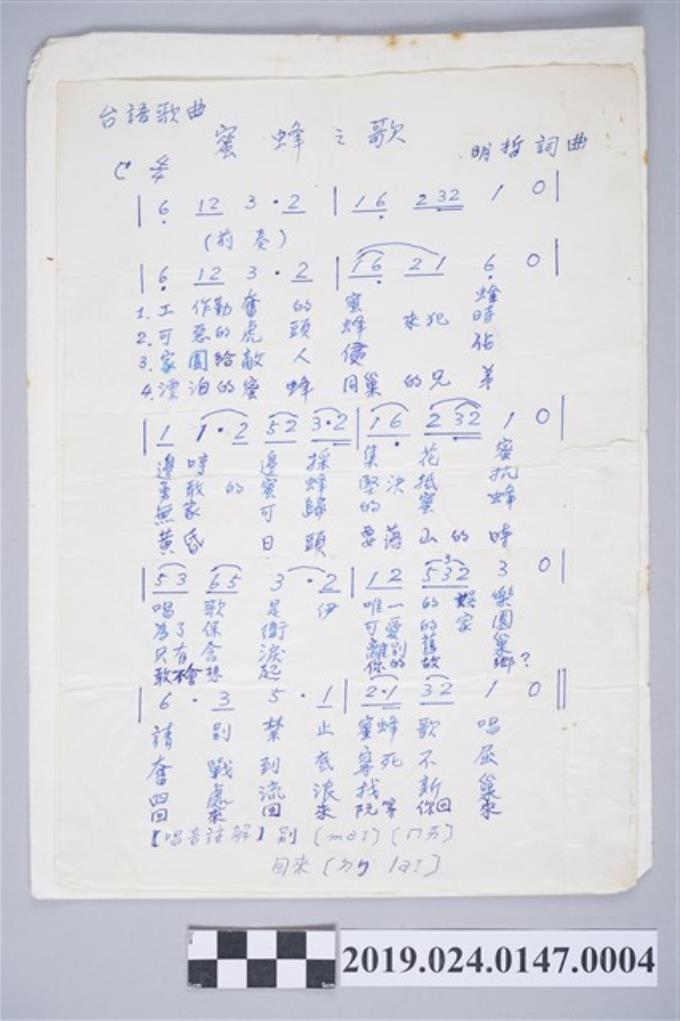 台語歌曲
蜜蜂之歌
明哲詞曲
C 4/4
| 6 12 3·2 | 16 232 1 0 |
(前奏)
| 6 12 3·2 | 16 21 6 0 |
1.工作勤奮的蜜蜂
2.可惡的虎頭蜂來犯時
3.家園給敵人侵佔
4.漂泊的蜜蜂同巢的兄弟
| 1 1·2 52 3·2 | 16 232 1 0 |
邊哼邊採集花蜜
勇敢的蜜蜂堅決抵抗
無家可歸的蜜蜂
黃昏日頭要落山的時
| 53 65 3·2 | 12 532 3 0 |
唱歌是伊唯一的娛樂
為了保衛可愛的家園
只有含淚離別的舊巢
敢不會想起你的故鄉?
| 6·3 5·1 | 2·1 32 1 0 ‖
請別禁止蜜蜂歌唱
奮戰到底寧死不屈
四處流浪找新巢
回來回來阮等你回來
【唱音註解】別〔mai〕(ㄇㄞ)
回來